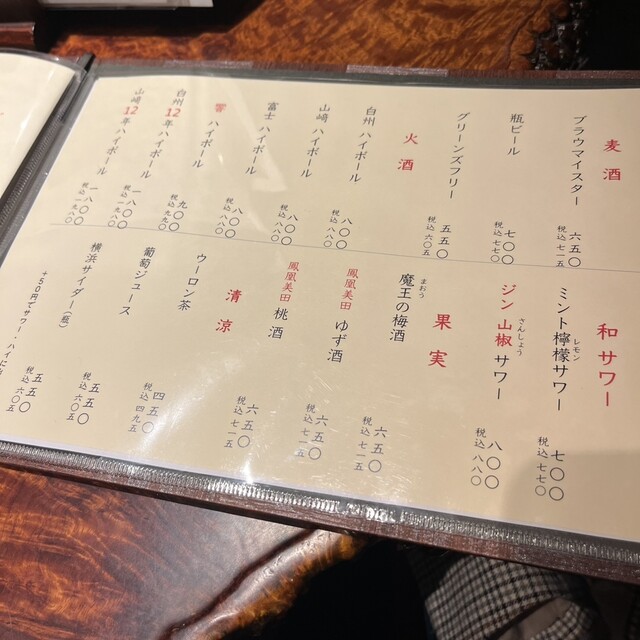 麦酒
ブラウマイスター 六五〇
税込 七一五
瓶ビール 七〇〇
税込 七七〇
グリーンズフリー 五五〇
税込 六〇五
火酒
白州 ハイボール 八〇〇
税込 八八〇
山崎 ハイボール 八〇〇
税込 八八〇
富士 ハイボール 八〇〇
税込 八八〇
響 ハイボール 九〇〇
税込 九九〇
白州12年 ハイボール 一八〇〇
税込
山崎12年 ハイボール 一八〇〇
税込
和サワー
レモン
ミント檸檬サワー 七〇〇
税込 七七〇
さんしょう
ジン 山椒 サワー 八〇〇
税込 八八〇
果実
まおう
魔王の梅酒 六五〇
税込 七一五
鳳凰美田 ゆず酒 六五〇
税込 七一五
鳳凰美田 桃酒 六五〇
税込 七一五
清涼
ウーロン茶 四五〇
税込 四九五
葡萄ジュース 五五〇
税込 六〇五
横浜サイダー(瓶) 五五〇
税込 六〇五
+50円でサワー・ハイ